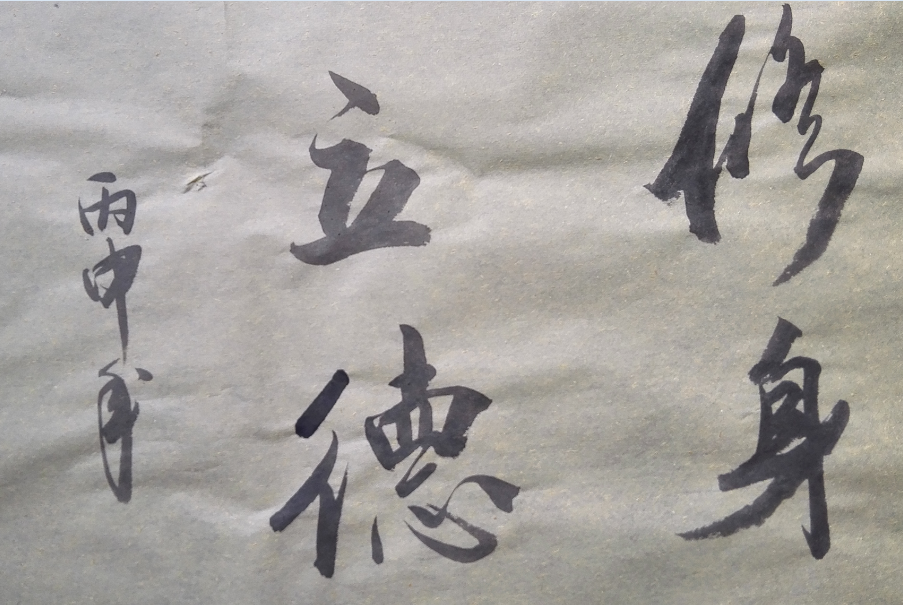 修身
立德
丙申年